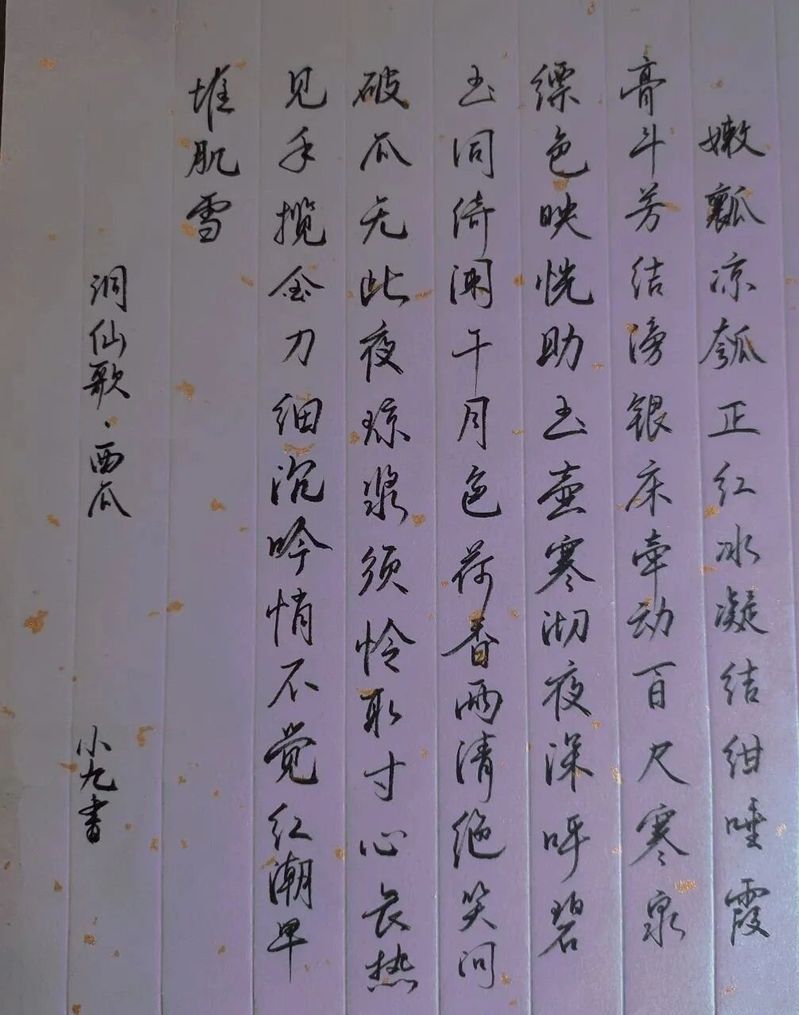 嫩瓤凉瓠正红冰凝结绀唾霞
膏斗芳结傍银床牵动百尺寒泉
缥色映恍助玉壶寒沏夜深呼碧
玉同倚阑干月色荷香两清绝笑问
破瓜无此夜琼浆须怜取寸心长热
见手揽金刀细沉吟悄不觉红潮早
堆肌雪
洞仙歌·西瓜
小九书